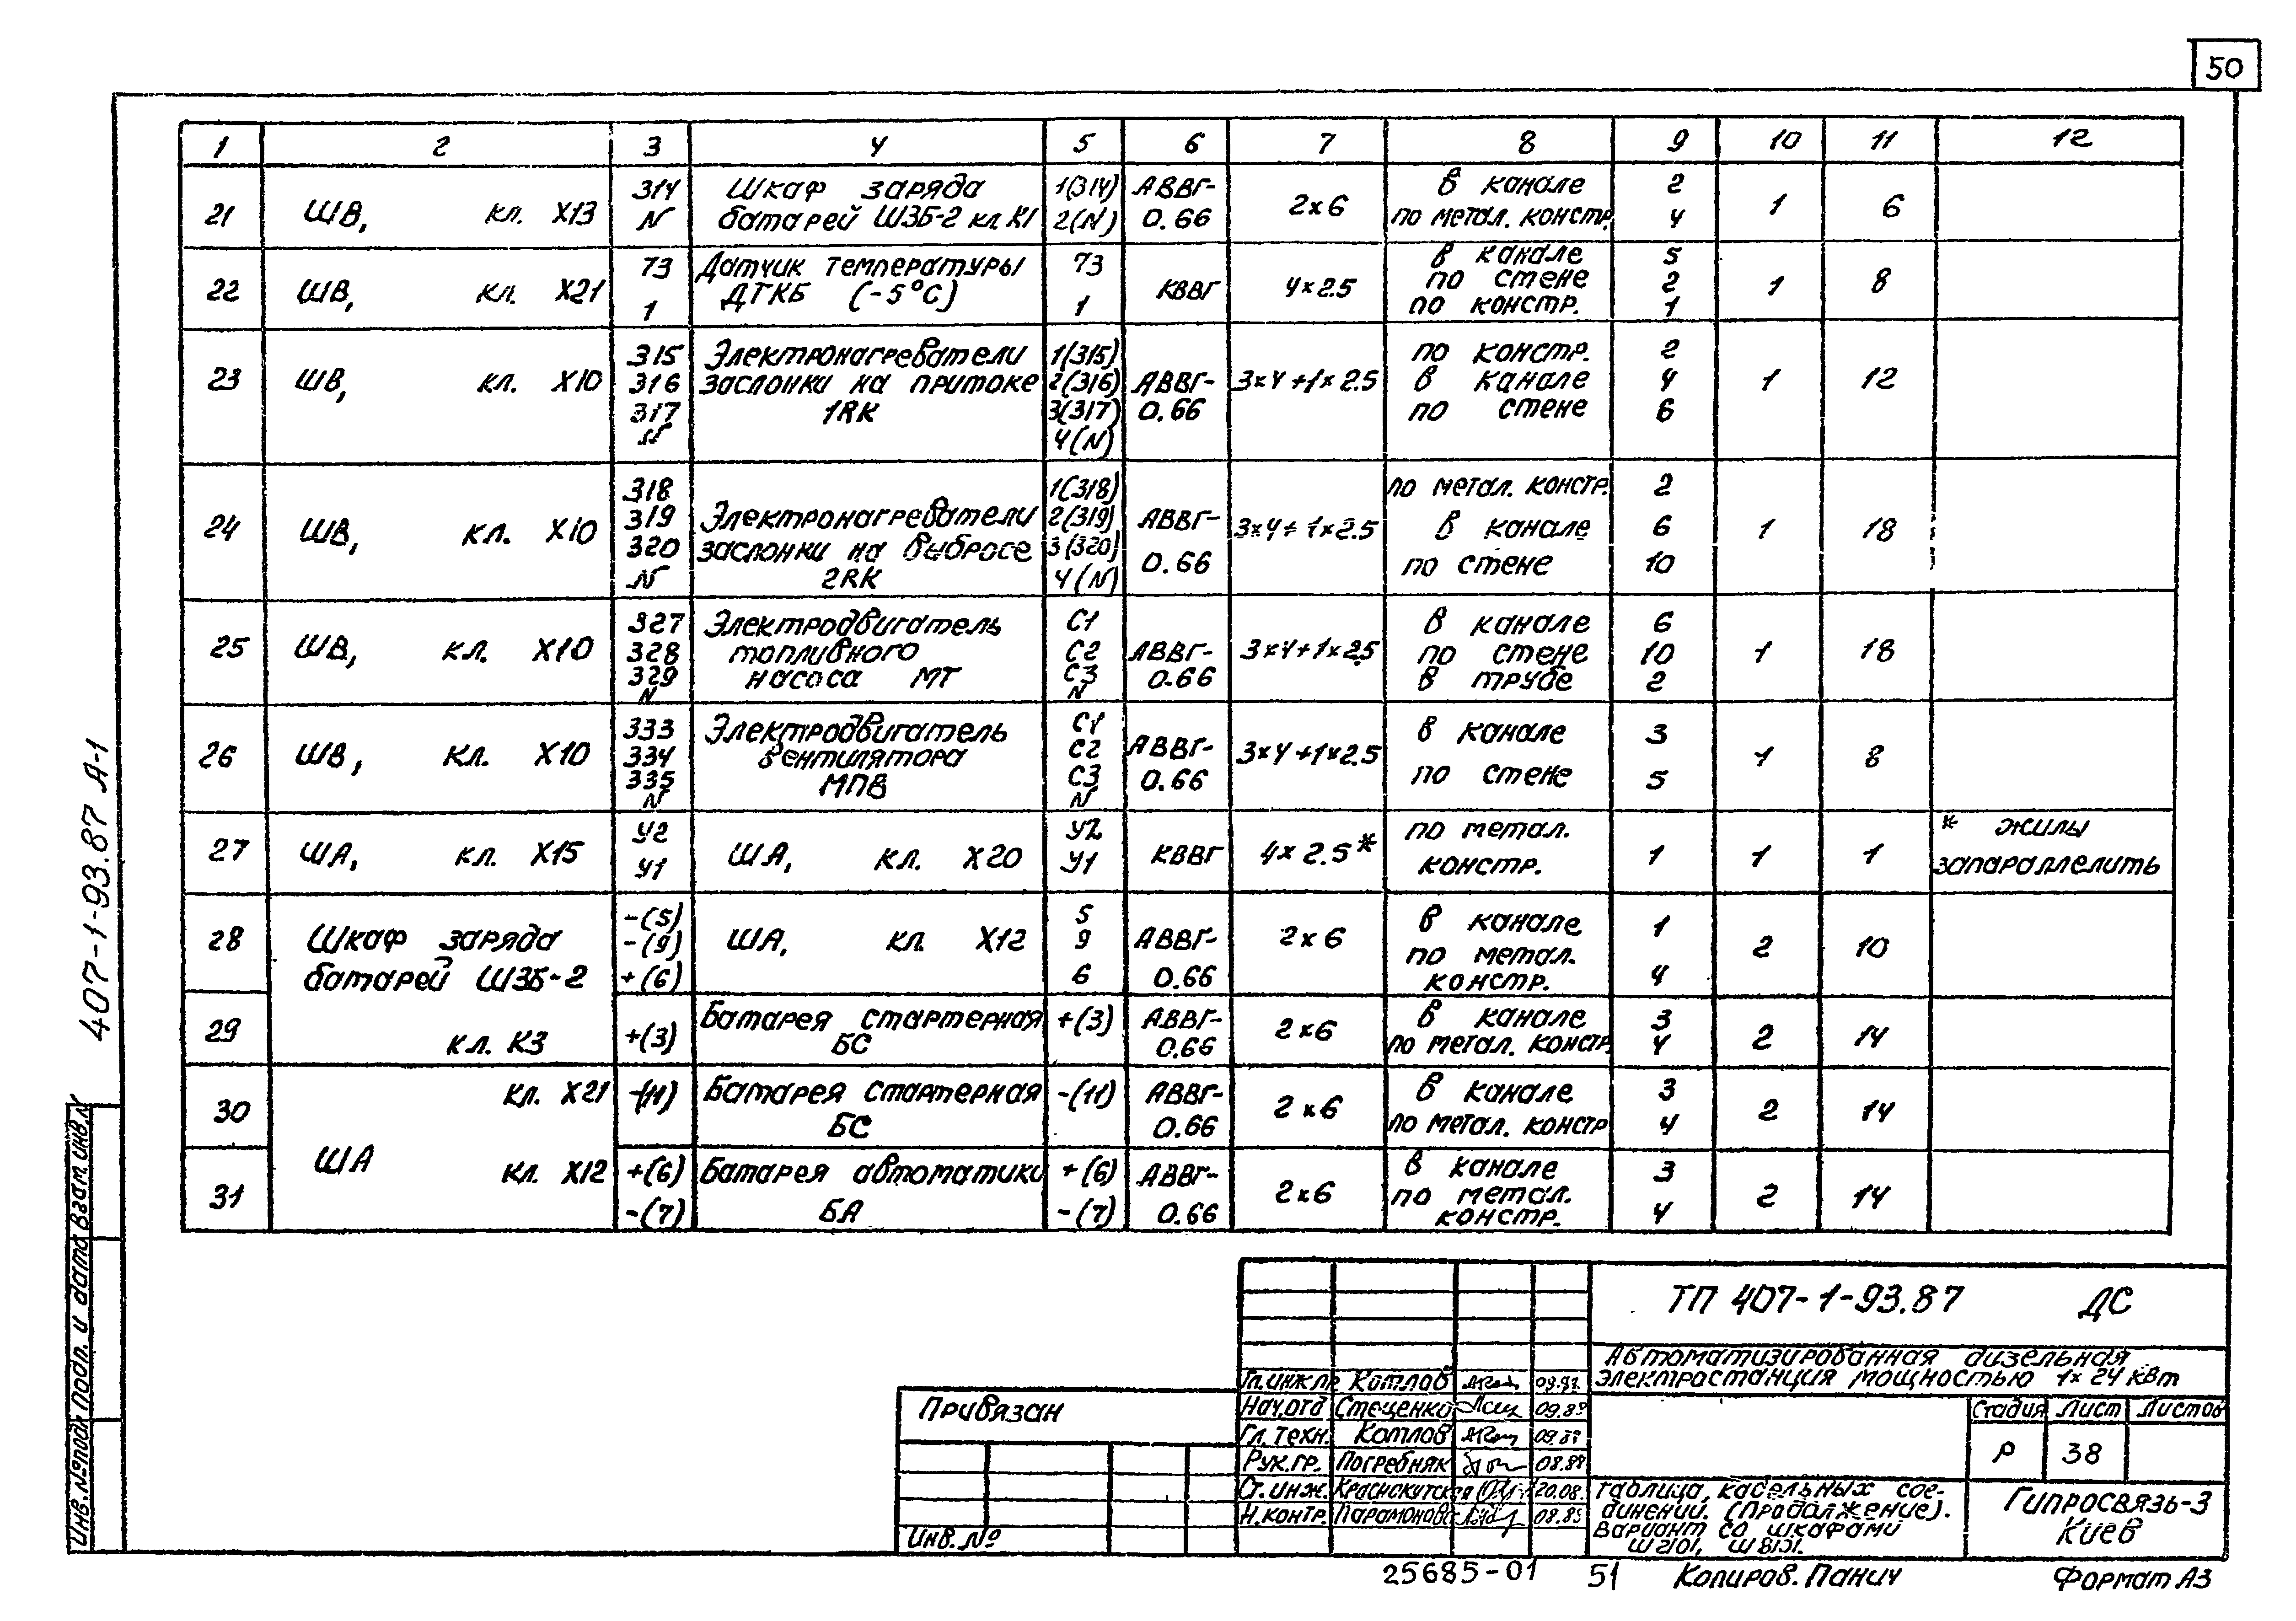 50
1 2 3 4 5 6 7 8 9 10 11 12
21 ШВ, кл. X13 314 N Шкаф заряда батарей ШЗБ-2 кл. К1 1(314) 2(N) АВВГ-0.66 2×6 в канале 2 по метал. констр. 4 1 6
22 ШВ, кл. X21 73 1 Датчик температуры ДТКБ (-5°С) 73 1 КВВГ 4×2.5 в канале 5 по стене 2 по констр. 1 1 8
23 ШВ, кл. X10 315 316 317 N Электронагреватели заслонки на притоке 1RK 1(315) 2(316) 3(317) 4(N) АВВГ-0.66 3×4+1×2.5 по констр. 2 в канале 4 по стене 6 1 12
24 ШВ, кл. X10 318 319 320 N Электронагреватели заслонки на выбросе 2RK 1(318) 2(319) 3(320) 4(N) АВВГ-0.66 3×4+1×2.5 по метал. констр. 2 в канале 6 по стене 10 1 18
25 ШВ, кл. X10 327 328 329 N Электродвигатель топливного насоса МТ С1 С2 С3 N АВВГ-0.66 3×4+1×2.5 в канале 6 по стене 10 в трубе 2 1 18
26 ШВ, кл. X10 333 334 335 N Электродвигатель вентилятора МПВ С1 С2 С3 N АВВГ-0.66 3×4+1×2.5 в канале 3 по стене 5 1 8
27 ША, кл. X15 У2 У1 ША, кл. X20 У2 У1 КВВГ 4×2.5* по метал. констр. 1 1 1 * жилы запараллелить
28 Шкаф заряда батарей ШЗБ-2 -(5) -(9) +(6) ША, кл X12 5 9 6 АВВГ-0.66 2×6 в канале 1 по метал. констр. 4 2 10
29 кл. К3 +(3) Батарея стартерная БС +(3) АВВГ-0.66 2×6 в канале 3 по метал. констр. 4 2 14
30 ША кл. X21 -(11) Батарея стартерная БС -(11) АВВГ-0.66 2×6 в канале 3 по метал. констр 4 2 14
31 кл. X12 +(6) -(7) Батарея автоматики БА +(6) -(7) АВВГ-0.66 2×6 в канале 3 по метал. констр. 4 2 14
407-1-93.87 А-1
Инв. №подл Подп. и дата Взам. инв. №
ТП 407-1-93.87 ДС
Автоматизированная дизельная
электростанция мощностью 1×24 кВт
Гл. инж. пр Котлов
Нач. отд Стеценко 09.89
Гл. техн. Котлов 09.89
Рук. гр. Погребняк 08.89
Ст. инж. Краснокутская 20.08.
Н. контр. Парамонова 08.89
Стадия Лист Листов
Р 38
Таблица кабельных сое-
динений. (Продолжение).
Вариант со шкафами
Ш2101, Ш8151.
Гипросвязь-3
Киев
Привязан
Инв. №
25685-01 51 Копиров. Панич Формат А3